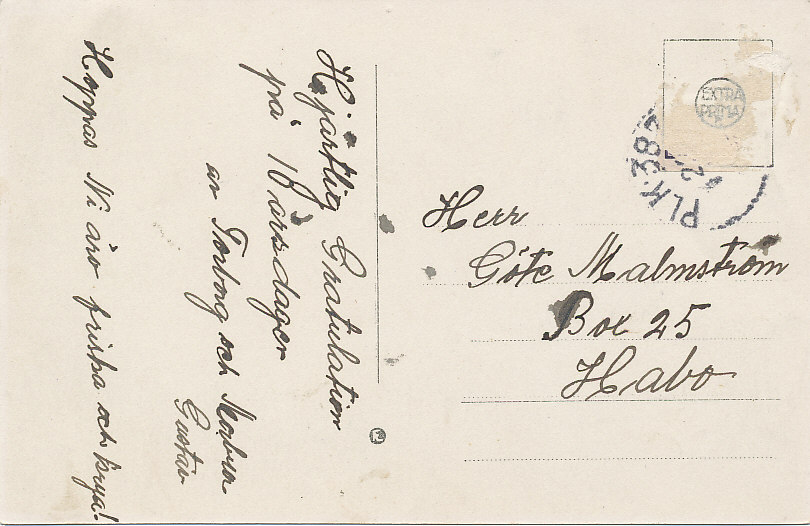 Hjärtlig Gratulation
på 18 årsdagen
av Torborg och
Gustav
Hoppas Ni äro friska och krya!
EXTRA
PRIMA
PLK 38
2
Herr
Göte Malmström
Box 25
Habo